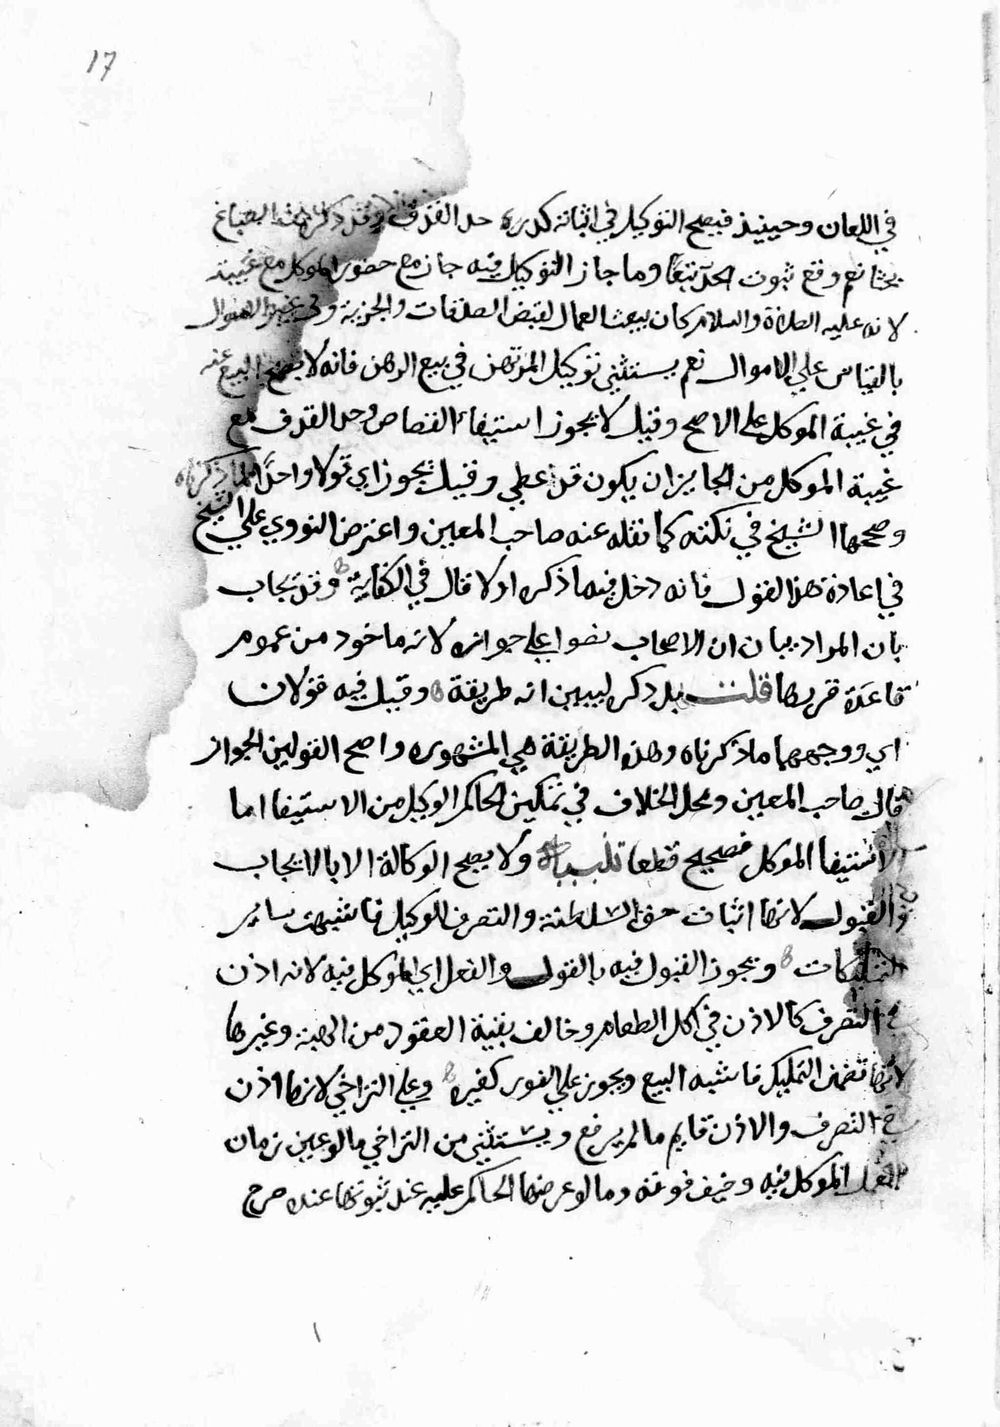 17
في اللعان وحينيذ فيصح التوكيل في اثباته كدرء حد القذف وقد ذكر هذا الصباغ
بحثا نعم وقع ثبوت الحد تبعا وما جاز التوكيل فيه جاز مع حضور الموكل مع غيبته
لانه عليه الصلاة والسلام كان يبعث العمال لقبض الصدقات والجزية وفي غير الاموال
بالقياس علي الاموال نعم يستثني توكيل المرتهن في بيع الرهن فانه لا يصح البيع عنه
في غيبة الموكل علي الاصح وقيل لا يجوز استيفاء القصاص وحد القذف مع
غيبة الموكل من الجايز ان يكون قد عفي وقيل يجوز اي قولا واحدا لما ذكرناه
وصححها الشيخ في نكته كما نقله عنه صاحب المعين واعترض النووي علي الشيخ
في اعادة هذا القول فانه دخل فيما ذكره اولا قال في الكفاية وقد يجاب
بان المراد بيان ان الاصحاب نصوا علي جوازه لانه ماخود من عموم
قاعدة قررها قلت بل ذكره ليبين انه طريقة وقيل فيه قولان
اي ووجههما ما ذكرناه وهذه الطريقة هي المشهوره واصح القولين الجواز
قال صاحب المعين ومحل الخلاف في تمكين الحاكم الوكيل من الاستيفا اما
استيفا الموكل فصحيح قطعا ولا يصح الوكالة الا بالايجاب
والقبول لانها اثبات حق السلطنة والتصرف للوكيل فاشبهت ساير
التمليكات ويجوز القبول فيه بالقول والفعل اي الموكل فيه لانه اذن
في التصرف كالاذن في اكل الطعام وخالف بقية العقود من الهبة وغيرها
لانها تضمن التمليك فاشبه البيع ويجوز علي الفور كغيره وعلي التراخي لانها اذن
في التصرف والاذن قايم ما لم يرفع ويستثني من التراخي ما لو عين زمان
العمل الموكل فيه وخيف فوته وما لو عرضها الحاكم عليه عند ثبوتها عنده صرح